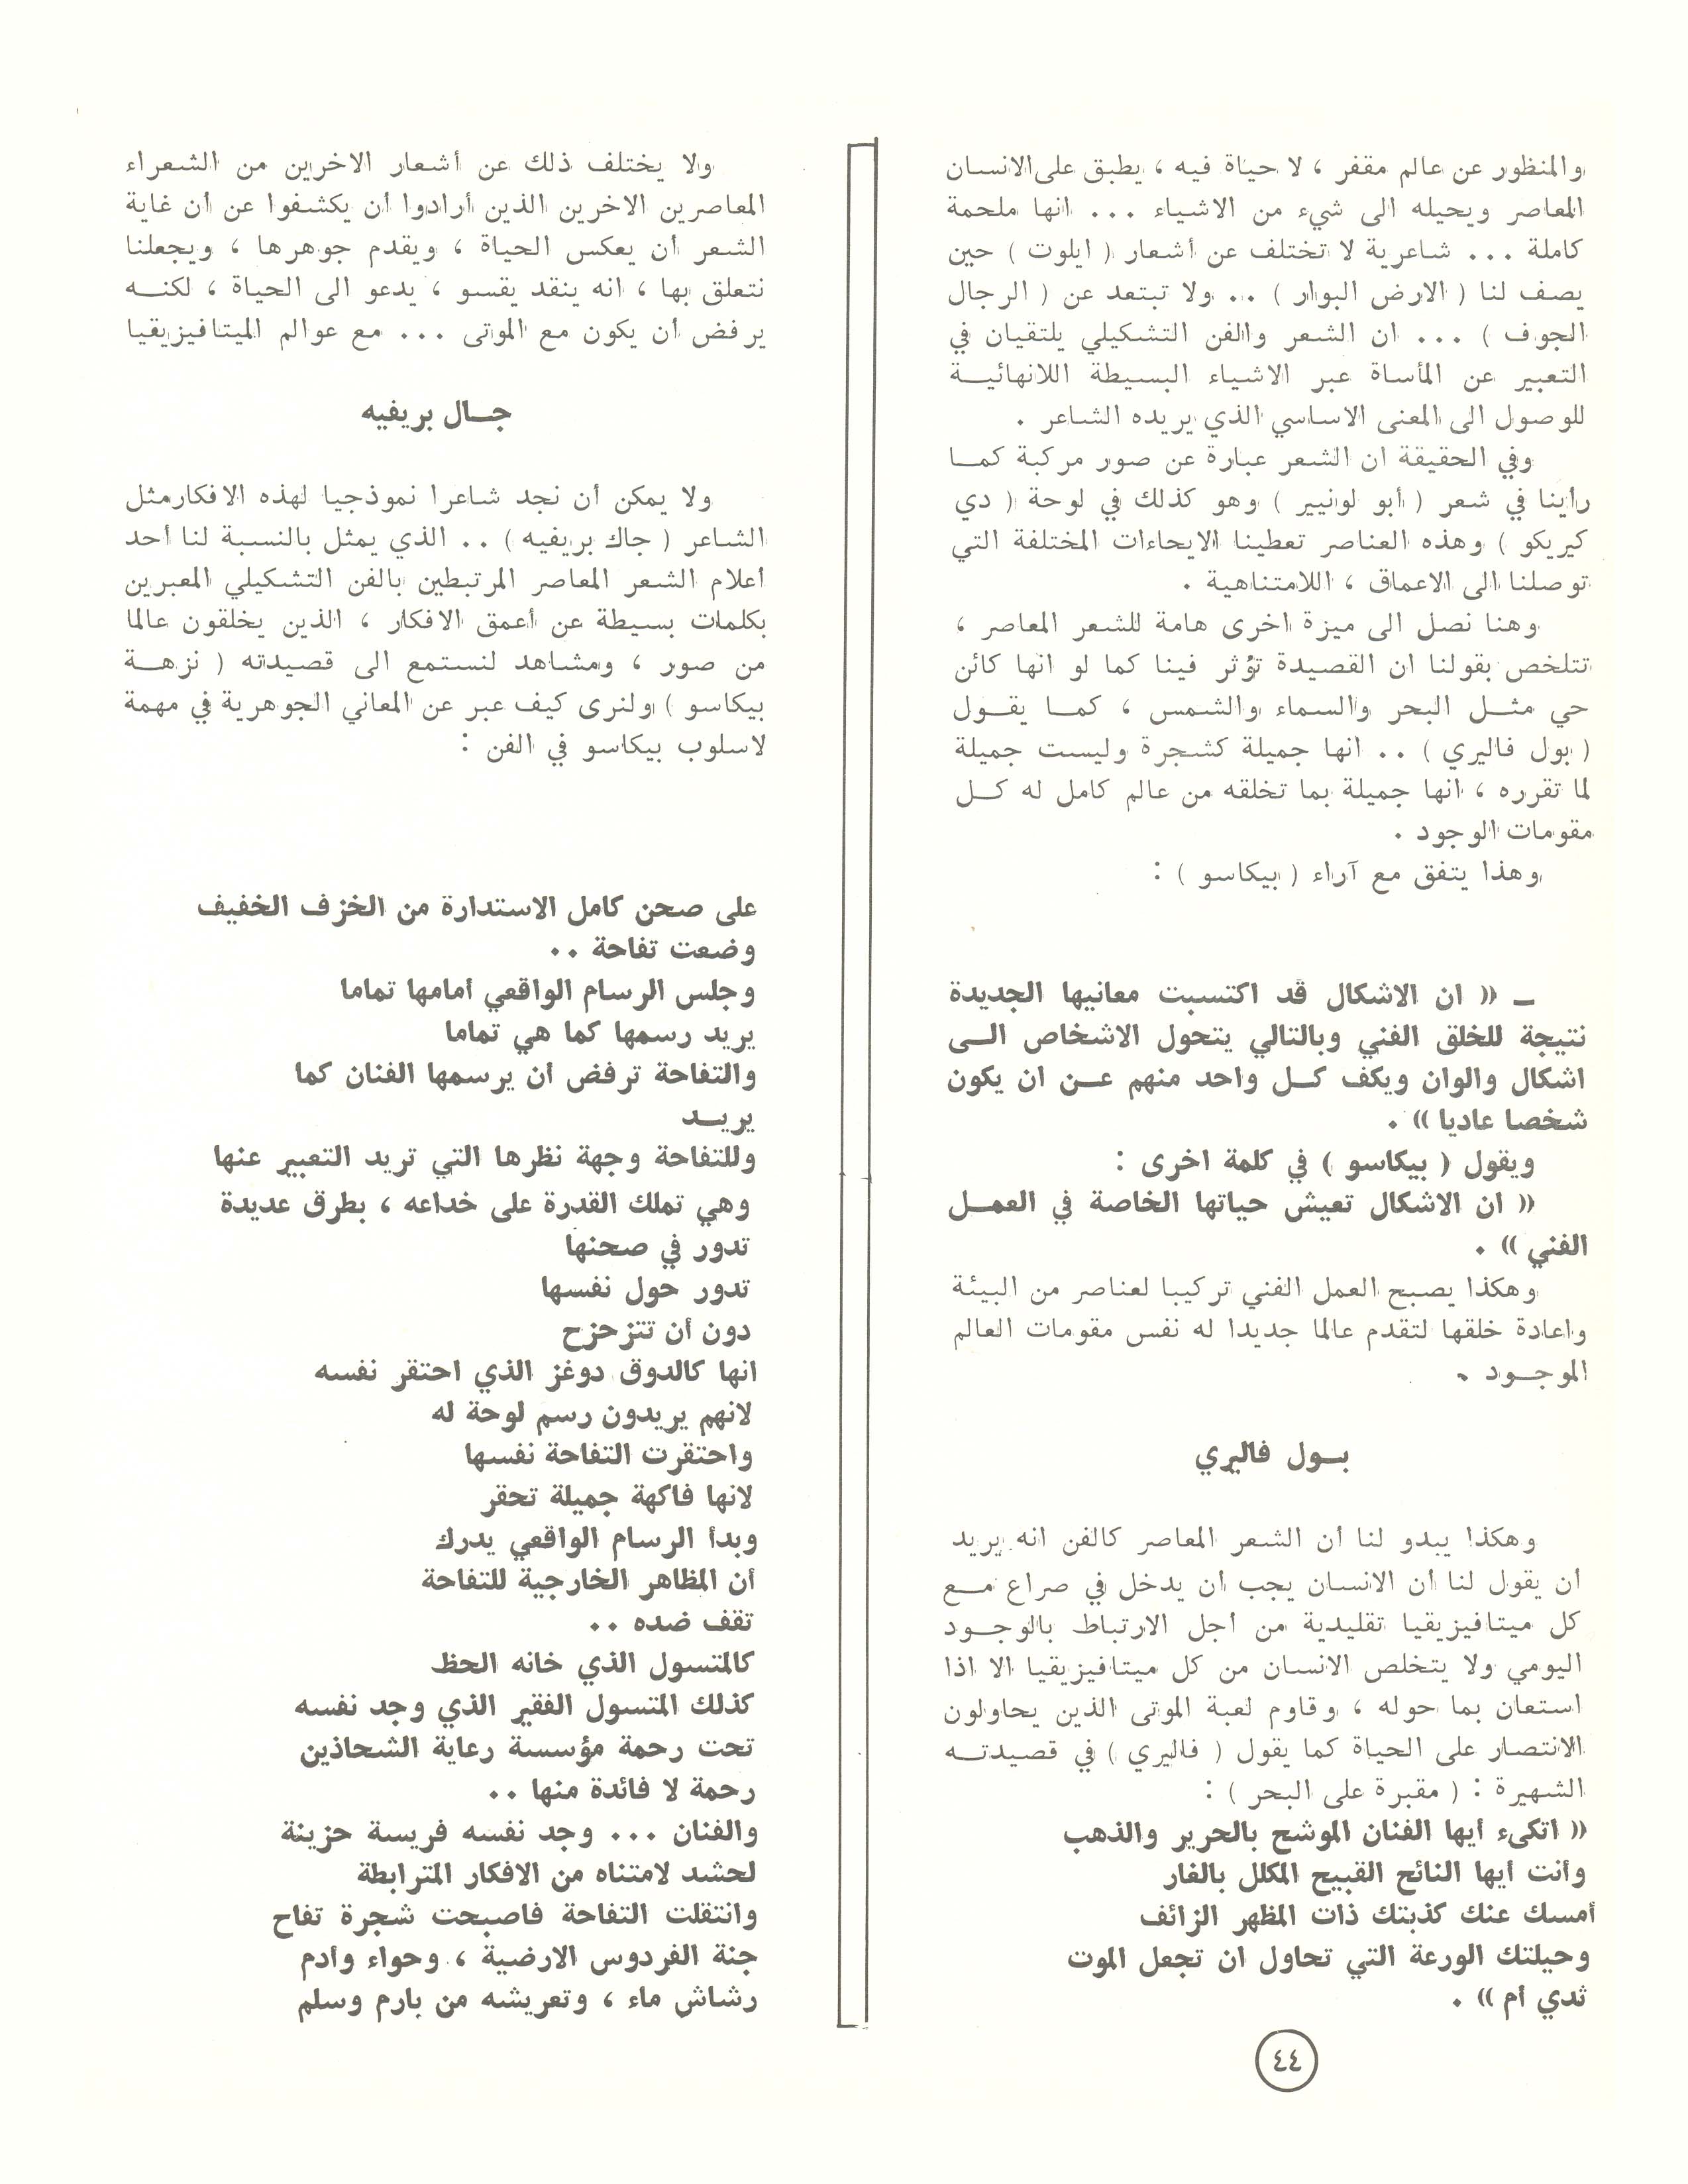 والمنظور عن عالم مقفر ، لا حياة فيه ، يطبق على الانسان
المعاصر ويحيله الى شيء من الاشياء ... انها ملحمة
كاملة ... شاعرية لا تختلف عن أشعار ( ايلوت ) حين
يصف لنا ( الارض البوار ) .. ولا تبتعد عن ( الرجال
الجوف ) ... ان الشعر والفن التشكيلي يلتقيان في
التعبير عن المأساة عبر الاشياء البسيطة اللانهائيـة
للوصول الى المعنى الاساسي الذي يريده الشاعر .
وفي الحقيقة ان الشعر عبارة عن صور مركبة كمـا
رأينا في شعر ( أبو لونيير ) وهو كذلك في لوحة ( دي
كيريكو ) وهذه العناصر تعطينا الايحاءات المختلفة التي
توصلنا الى الاعماق ، اللامتناهية .
وهنا نصل الى ميزة اخرى هامة للشعر المعاصر ،
تتلخص بقولنا ان القصيدة تؤثر فينا كما لو انها كائن
حي مثـل البحر والسماء والشمس ، كمـا يقـول
( بول فاليري ) .. انها جميلة كشجرة وليست جميلة
لما تقرره ، انها جميلة بما تخلقه من عالم كامل له كـل
مقومات الوجود .
وهذا يتفق مع آراء ( بيكاسو ) :
ـ « ان الاشكال قد اكتسبت معانيها الجديدة
نتيجة للخلق الفني وبالتالي يتحول الاشخاص الـى
اشكال والوان ويكف كـل واحد منهم عـن ان يكون
شخصا عاديا » .
ويقول ( بيكاسو ) في كلمة اخرى :
« ان الاشكال تعيش حياتها الخاصة في العمـل
الفني » .
وهكذا يصبح العمل الفني تركيبا لعناصر من البيئة
واعادة خلقها لتقدم عالما جديدا له نفس مقومات العالم
الموجـود .
بـول فاليري
وهكذا يبدو لنا أن الشعر المعاصر كالفن انه يريد
أن يقول لنا أن الانسان يجب أن يدخل في صراع مـع
كل ميتافيزيقيا تقليدية من أجل الارتباط بالوجـود
اليومي ولا يتخلص الانسان من كل ميتافيزيقيا الا اذا
استعان بما حوله ، وقاوم لعبة الموتى الذين يحاولون
الانتصار على الحياة كما يقول ( فاليري ) في قصيدتـه
الشهيرة : ( مقبرة على البحر ) :
« اتكىء أيها الفنان الموشح بالحرير والذهب
وأنت أيها النائح القبيح المكلل بالغار
أمسك عنك كذبتك ذات المظهر الزائف
وحيلتك الورعة التي تحاول ان تجعل الموت
ثدي أم » .
ولا يختلف ذلك عن أشعار الاخرين من الشعراء
المعاصرين الاخرين الذين أرادوا أن يكشفوا عن أن غاية
الشعر أن يعكس الحياة ، ويقدم جوهرها ، ويجعلنا
نتعلق بها ، انه ينقد يقسو ، يدعو الى الحياة ، لكنـه
يرفض أن يكون مع الموتى ... مع عوالم الميتافيزيقيا
جـال بريفيه
ولا يمكن أن نجد شاعرا نموذجيا لهذه الافكار مثل
الشاعر ( جاك بريفيه ) .. الذي يمثل بالنسبة لنا أحد
أعلام الشعر المعاصر المرتبطين بالفن التشكيلي المعبرين
بكلمات بسيطة عن أعمق الافكار ، الذين يخلقون عالما
من صور ، ومشاهد لنستمع الى قصيدته ( نزهـة
بيكاسو ) ولنرى كيف عبر عن المعاني الجوهرية في مهمة
لاسلوب بيكاسو في الفن :
على صحن كامل الاستدارة من الخزف الخفيف
وضعت تفاحة ..
وجلس الرسام الواقعي أمامها تماما
يريد رسمها كما هي تماما
والتفاحة ترفض أن يرسمها الفنان كما
يريـد
وللتفاحة وجهة نظرها التي تريد التعبير عنها
وهي تملك القدرة على خداعه ، بطرق عديدة
تدور في صحنها
تدور حول نفسها
دون أن تتزحزح
انها كالدوق دوغز الذي احتقر نفسه
لانهم يريدون رسم لوحة له
واحتقرت التفاحة نفسها
لانها فاكهة جميلة تحقر
وبدأ الرسام الواقعي يدرك
أن المظاهر الخارجية للتفاحة
تقف ضده ..
كالمتسول الذي خانه الحظ
كذلك المتسول الفقير الذي وجد نفسه
تحت رحمة مؤسسة رعاية الشحاذين
رحمة لا فائدة منها ..
والفنان ... وجد نفسه فريسة حزينة
لحشد لامتناه من الافكار المترابطة
وانتقلت التفاحة فاصبحت شجرة تفاح
جنة الفردوس الارضية ، وحواء وآدم
رشاش ماء ، وتعريشه من بارم وسلم
٤٤